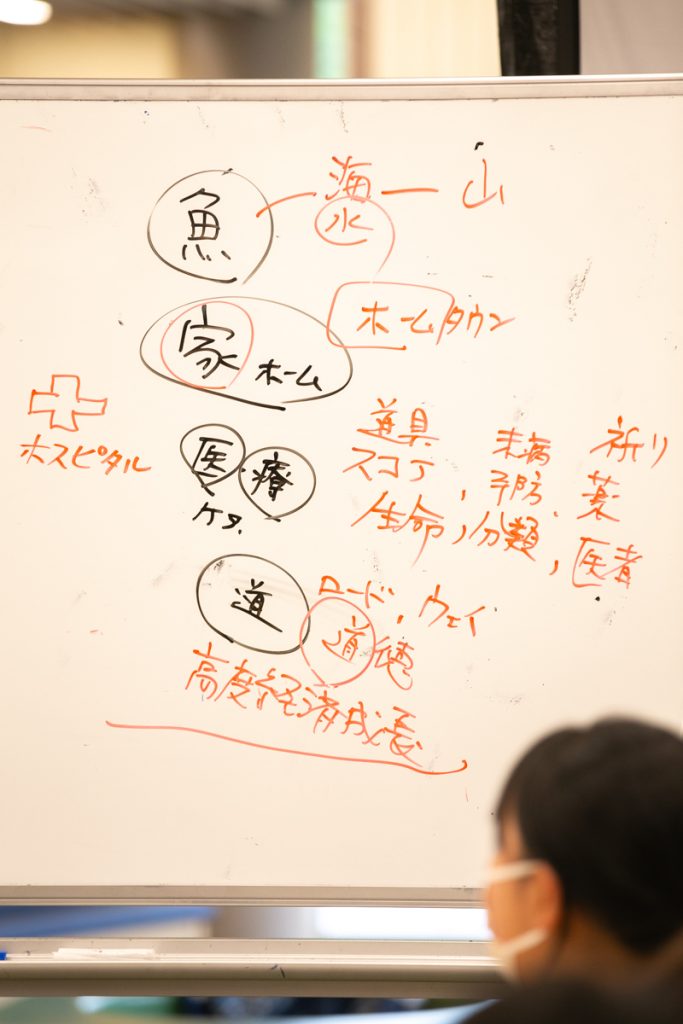 魚 ー 海 ー 山
水
家 ホーム ホームタウン
ホスピタル
医・療
ケア
道具 未病 祈り
スコア, 予防. 薬
生命, 分類, 医者
道 ロード, ウェイ
道徳
高度経済成長